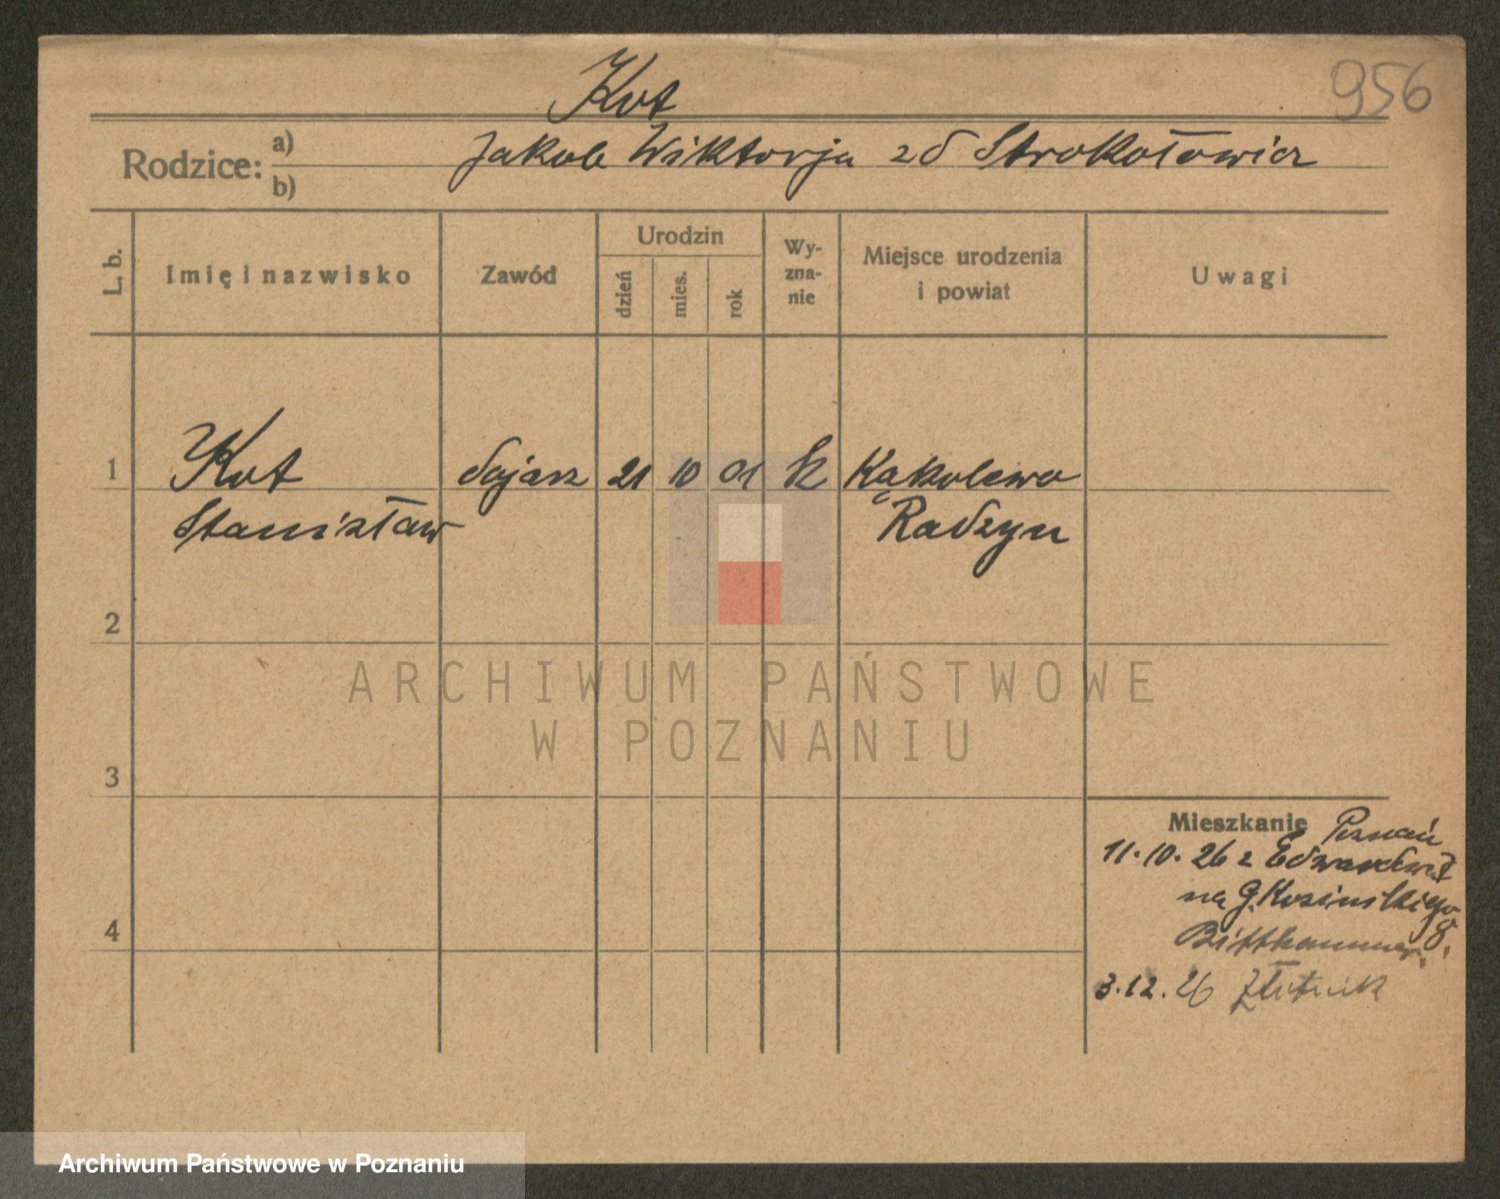 956
Kot
Rodzice: a) Jakob Wiktorja zd Strokołowicz
b)
L. b.
Imię i nazwisko
Zawód
Urodzin
dzień
mies.
rok
Wy-
zna-
nie
Miejsce urodzenia
i powiat
Uwagi
1 Kot dojarz 21 10 01 k Kąkolewo
Stanisław Radzyn
2
3
4
ARCHIWUM PAŃSTWOWE
W POZNANIU
Mieszkanie Poznań
11.10.26 z
na G. Kosinskiego
8.
3.12.26
Archiwum Państwowe w Poznaniu